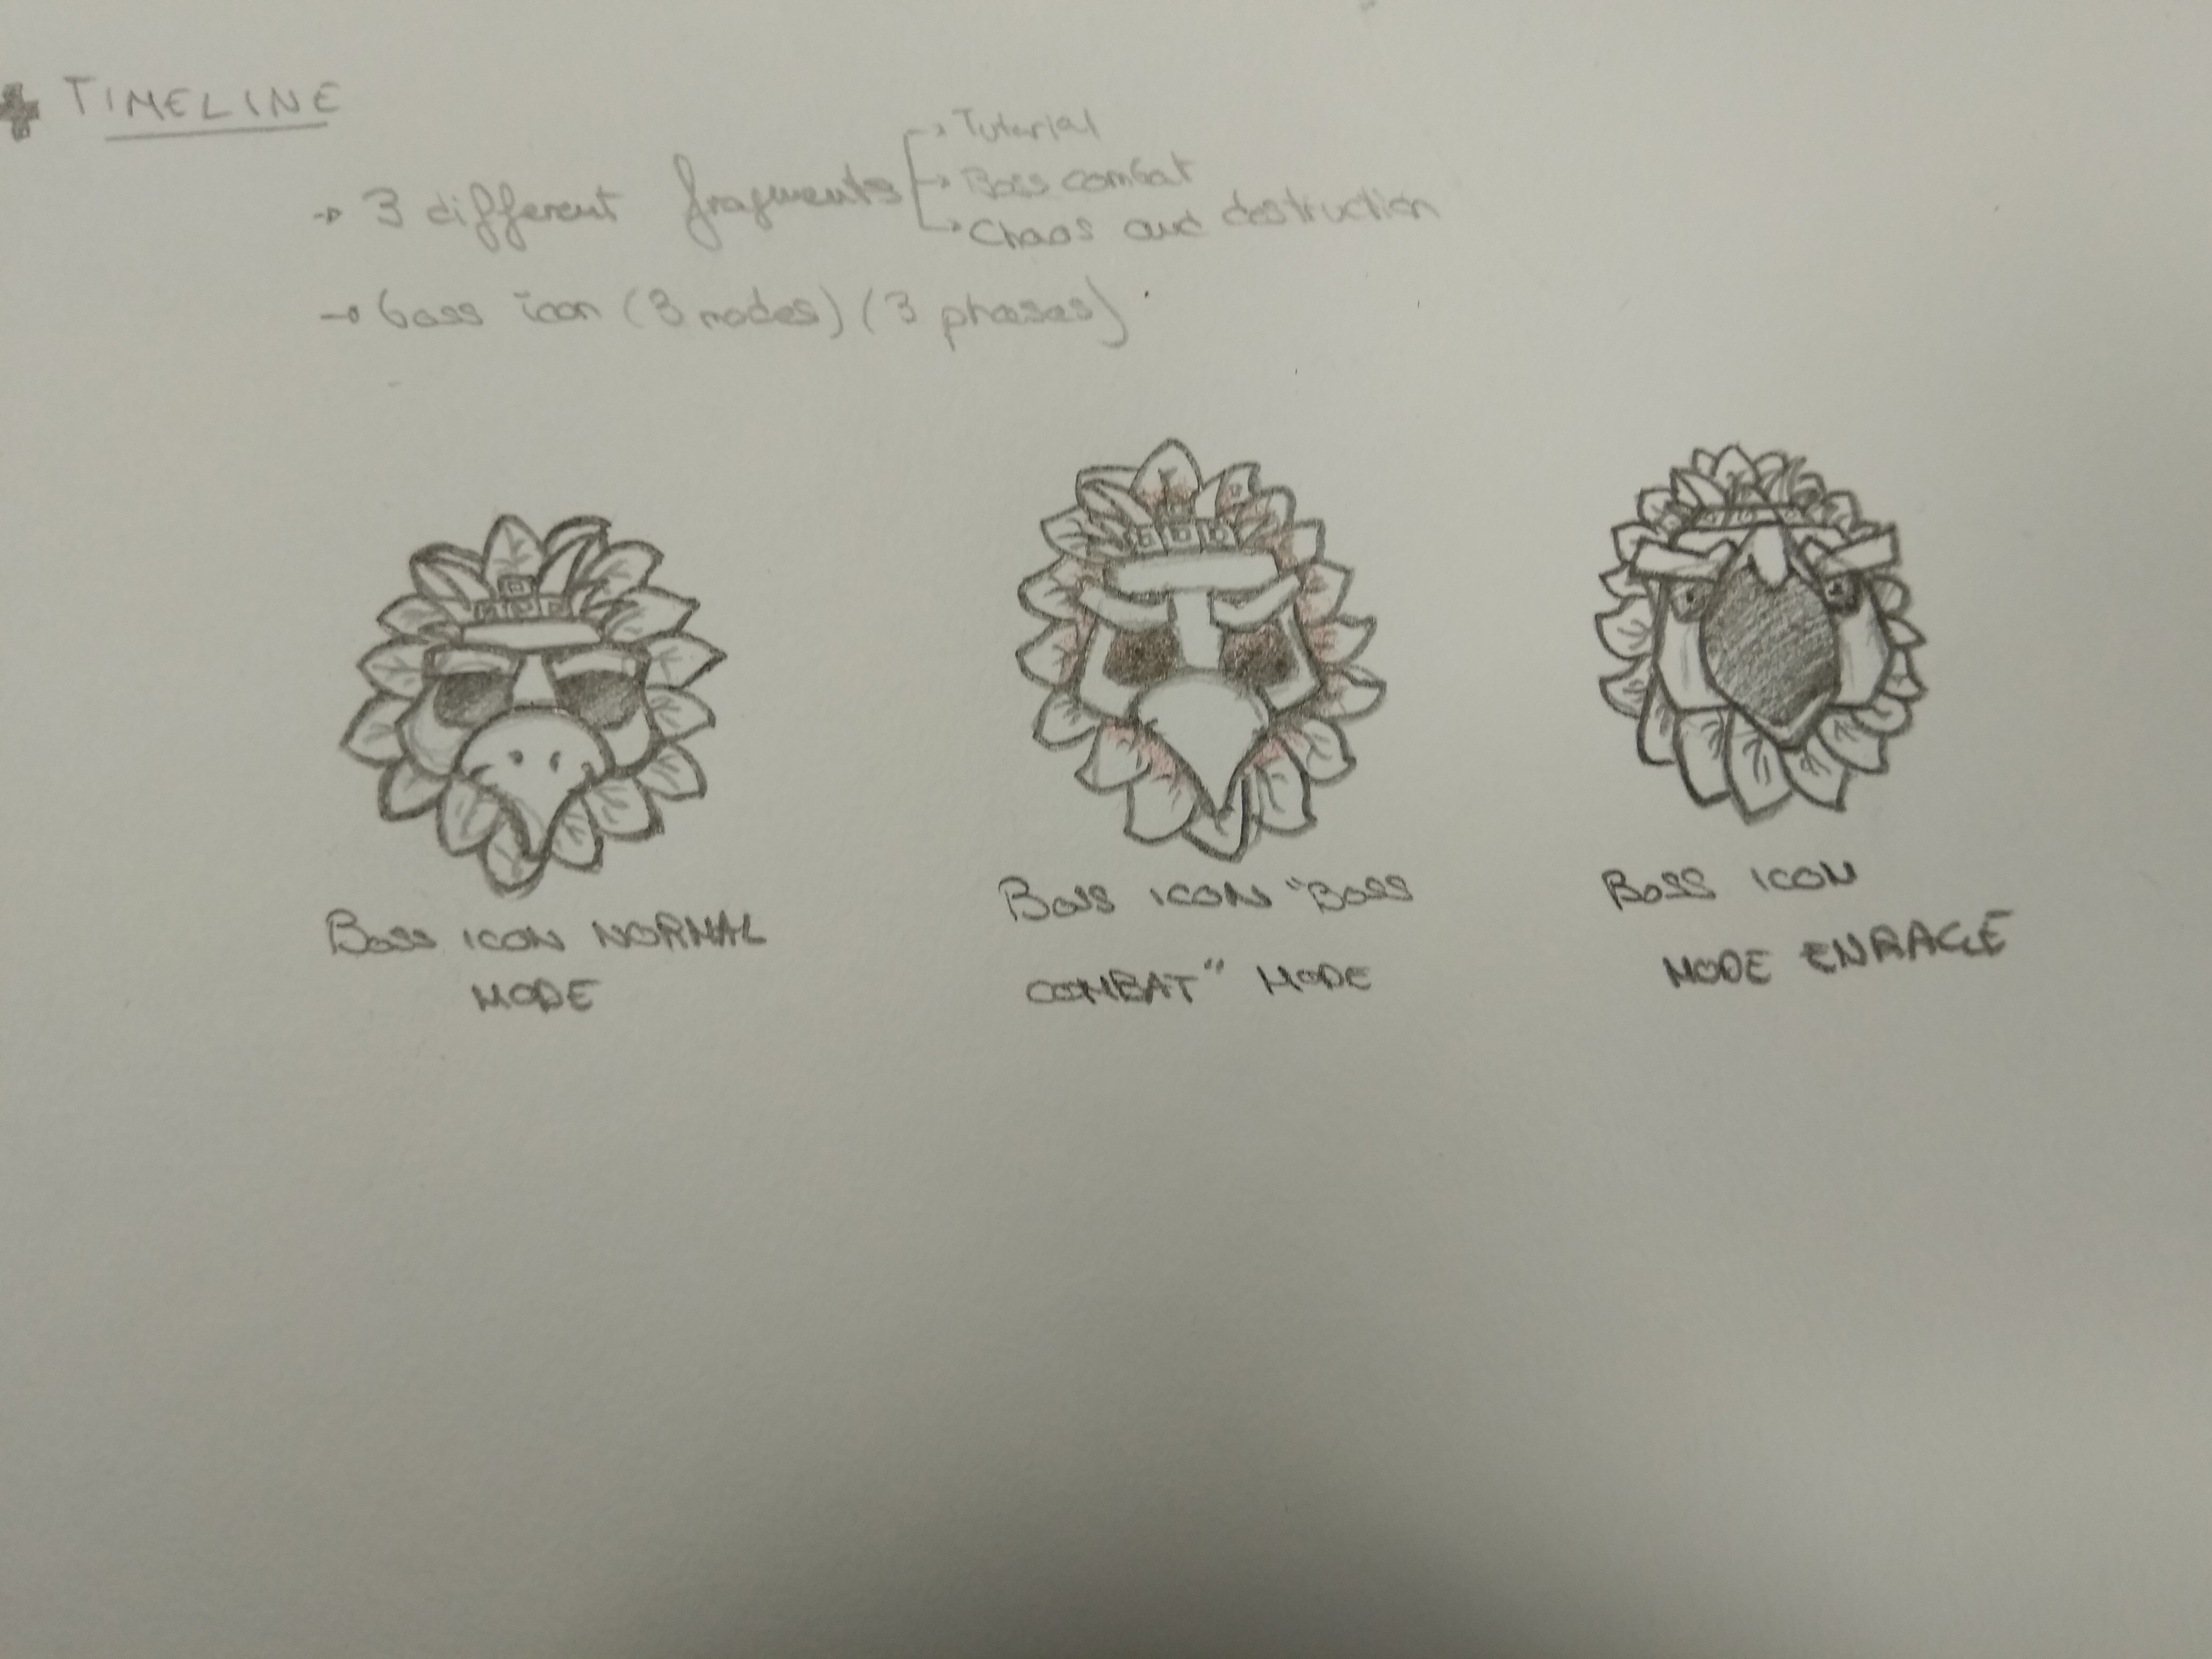 TIMELINE
→ 3 different fragments
→ Tutorial
→ Boss combat
→ Chaos and destruction
→ boss icon (3 modes) (3 phases)
BOSS ICON NORMAL
MODE
BOSS ICON "BOSS
COMBAT" MODE
BOSS ICON
MODE ENRAGE